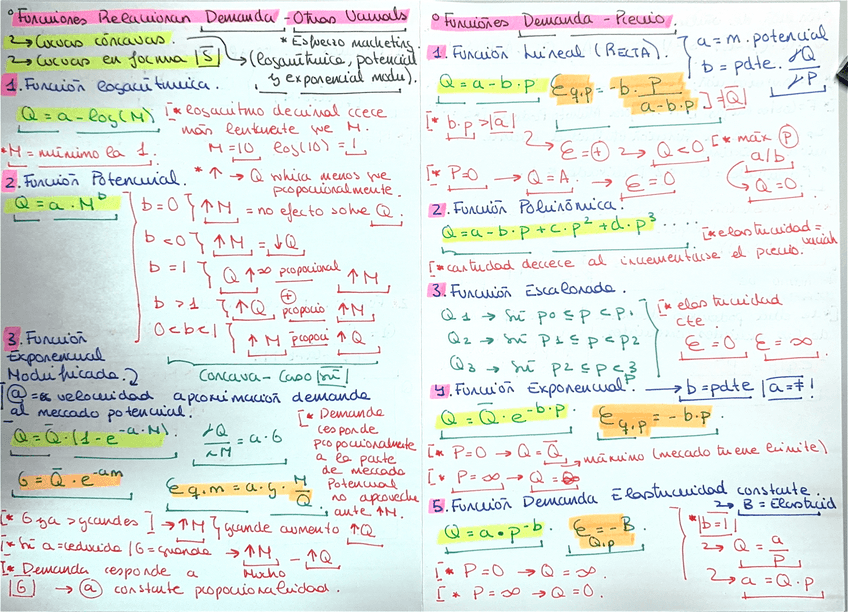 ° Funciones Relacionan Demanda - Otras Variables
2 → Curvas cóncavas.
2 → Curvas en forma S
* Esfuerzo marketing.
(Logarítmica, potencial y exponencial modi).
1. Función logarítmica.
Q = a - log(M)
[* logaritmo decimal crece más lentamente que M.
* M = mínimo la 1.
M = 10 log(10) = 1
* ↑ → Q varía menos que proporcionalmente.
2. Función Potencial.
Q = a · M^b
b = 0 } ↑M = no efecto sobre Q.
b < 0 } ↑M = ↓Q
b = 1 } Q ↑ ∞ proporcional ↑M
b > 1 } ↑Q + proporcio ↑M
0 < b < 1 } ↑M proporci ↑Q
Cóncava - Caso
3. Función Exponencial Modificada.
a = velocidad aproximación demanda al mercado potencial.
Q = Q̄ · (1 - e^-a·M).
= a · G
[* Demanda responde proporcionalmente a la parte de mercado Potencial no aprovecha ante ↑M.
G = Q̄ · e^-am
E q,m = a · g · M/Q̄
[* G y a > grandes ] → ↑M } grande aumento ↑Q
[* Si a = reducida / G = grande → ↑M - ↑Q
[* Demanda responde a Mucho
G → a constante proporcionalidad.
° Funciones Demanda - Precio.
1. Función Lineal (RECTA).
a = m. potencial
b = pdte.
Q = a - b · p
E q,p = -b · P/a-b·p ] = Q̄
[* b·p > a
2→ E = + 2→ Q < 0
[* máx P
a/b
→ Q = 0.
[* P=0 → Q = A. → E = 0
2. Función Polinómica.
Q = a - b·p + c·p² + d·p³ ....
[* elasticidad = variab
[* cantidad decrece al incrementarse el precio.
3. Función Escalonada.
Q1 → Si p0 ≤ p < p1
Q2 → Si p1 ≤ p < p2
Q3 → Si p2 ≤ p < p3
[* elasticidad cte.
E = 0 E = ∞
4. Función Exponencial → b = pdte | a = ≠!
Q = Q̄ · e^-b·p
E q,p = - b·p
[* P=0 → Q = Q̄ → máximo (mercado tiene límite)
[* P = ∞ → Q =
5. Función Demanda Elasticidad constante.
2→ B = Elasticid
Q = a · p^-b
E = -B
Q,p
* b = 1
2→ Q = a/P
2→ a = Q · p
[* P = 0 → Q = ∞.
[* P = ∞ → Q = 0.